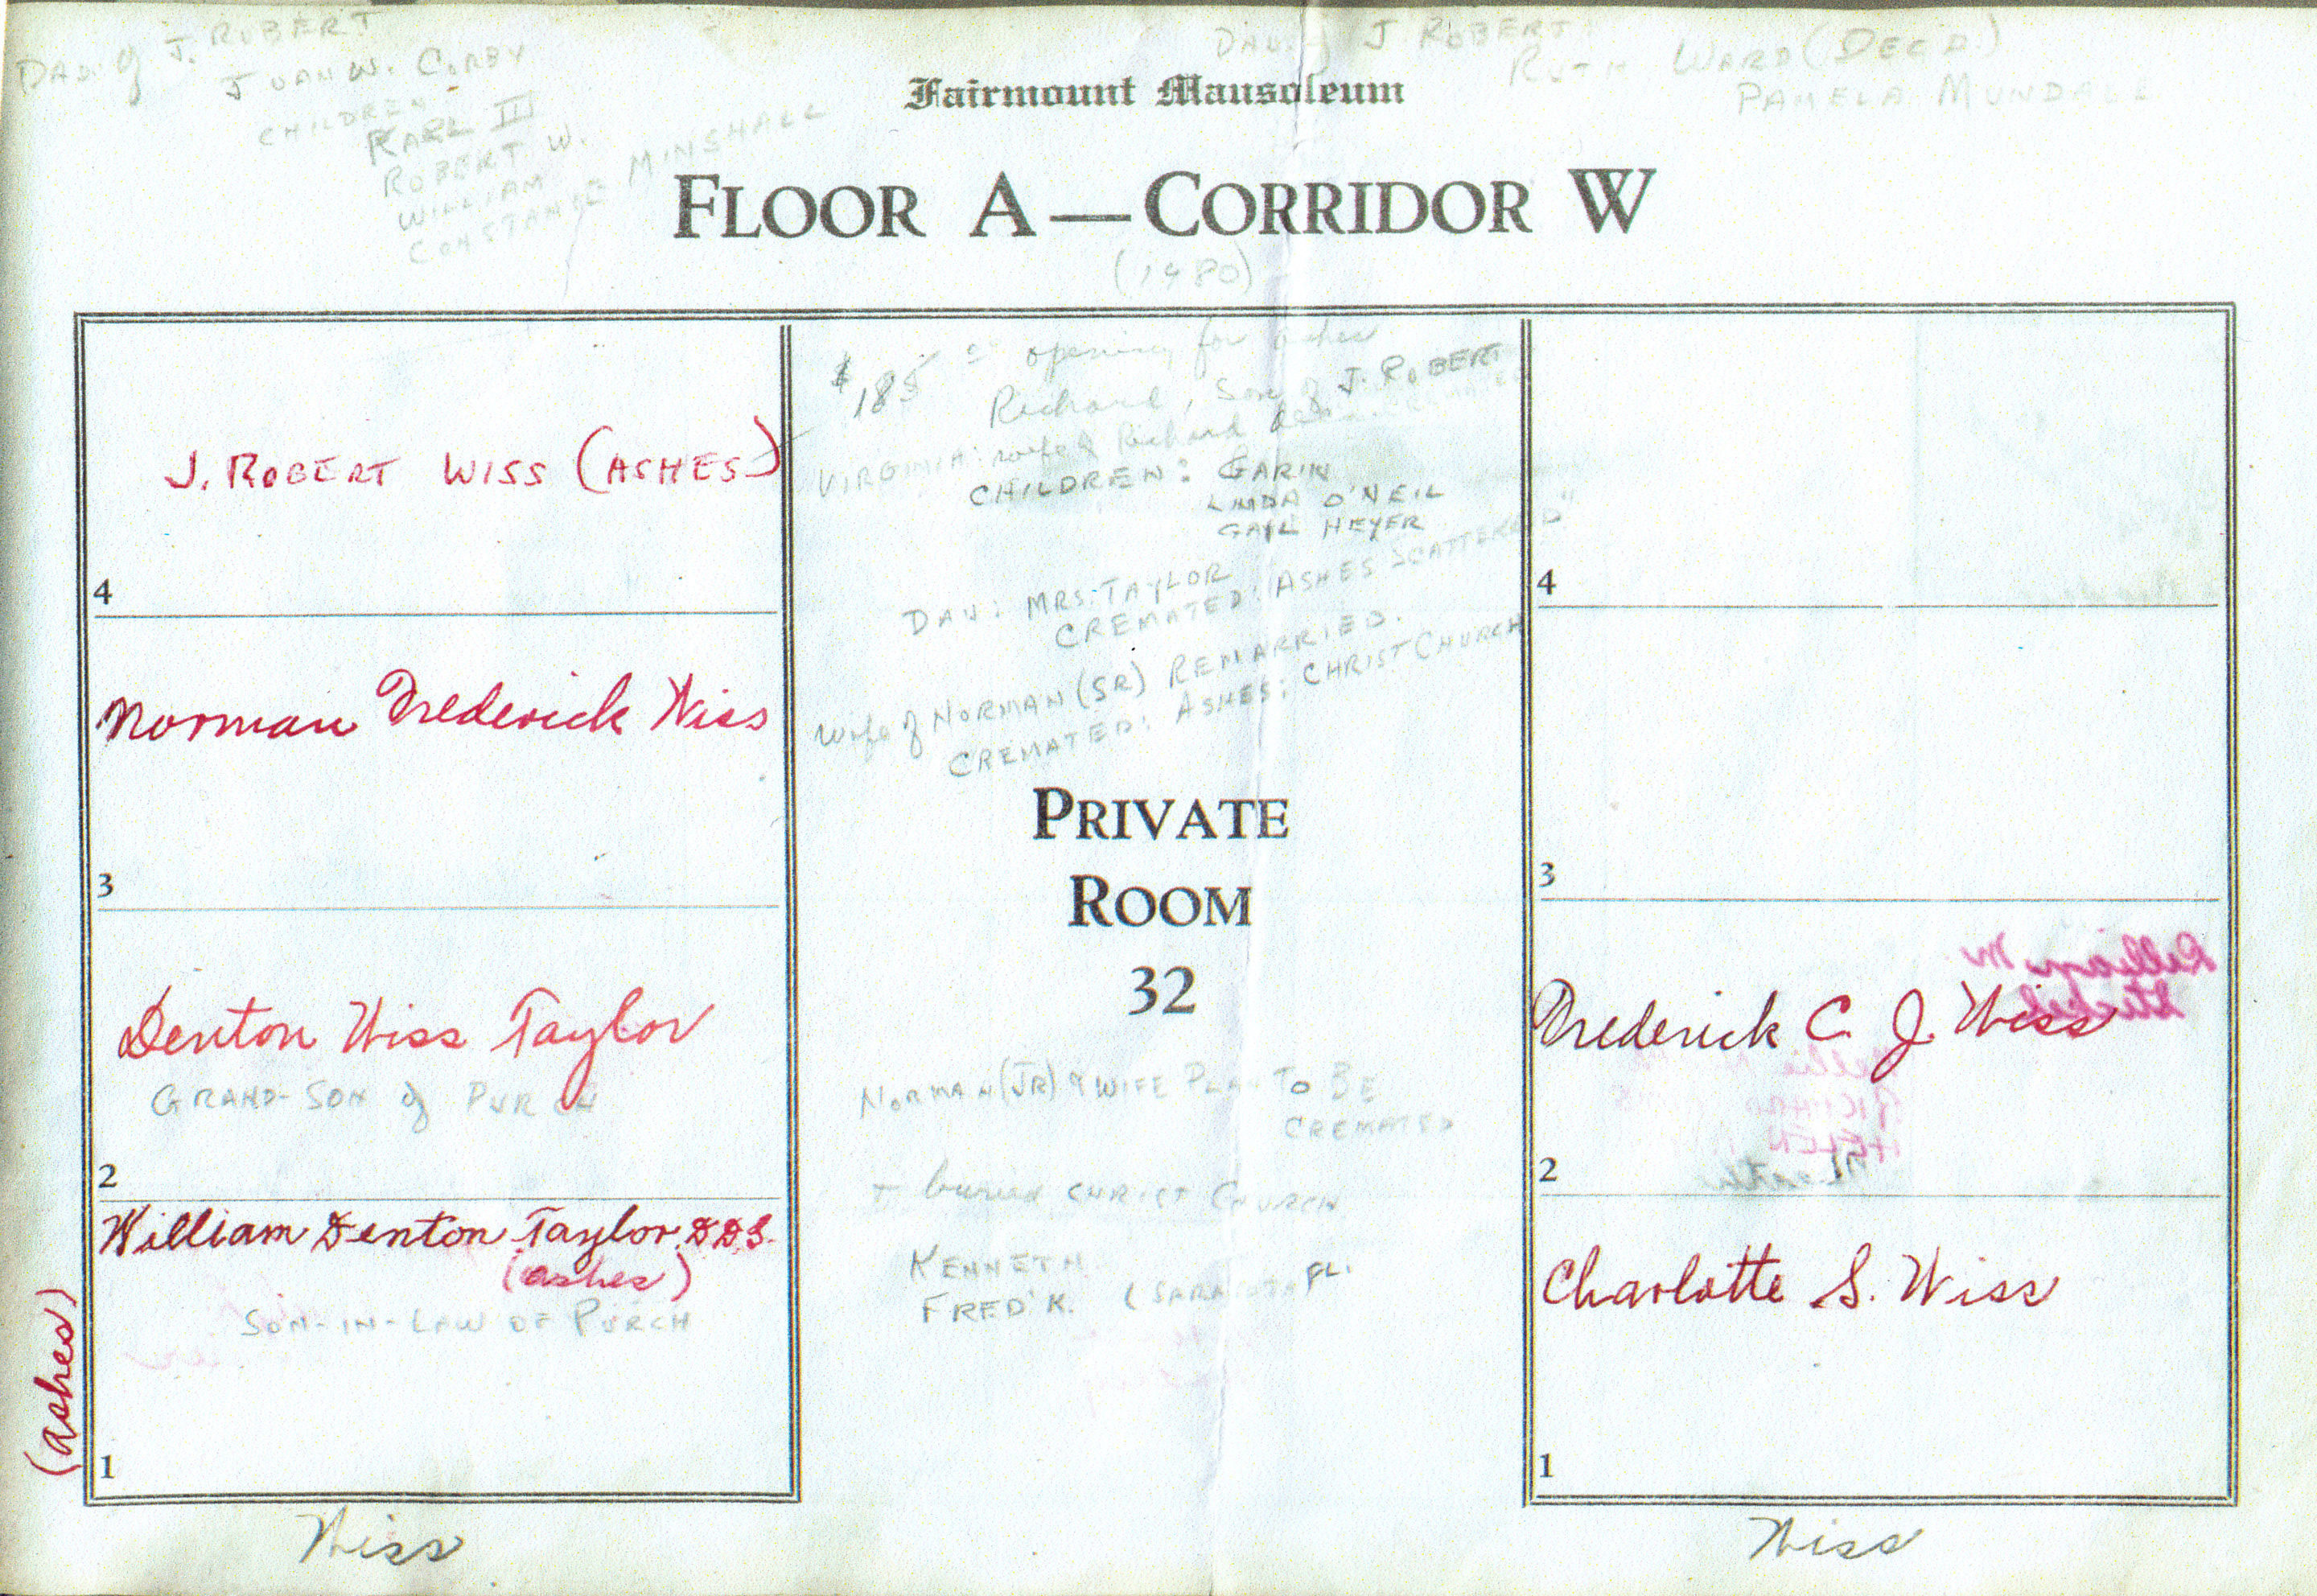 DAU. of J. ROBERT
JOAN W. CORBY
CHILDREN
KARL III
ROBERT W.
WILLIAM
CONSTANCE MINSHALL
DAU. of J. ROBERT
RUTH WARD (DEC'D.)
PAMELA MUNDALE
Fairmount Mausoleum
FLOOR A — CORRIDOR W
(1980)
J. ROBERT WISS (ASHES)
4
Norman Frederick Wiss
3
Denton Wiss Taylor
GRAND-SON of PURCH
2
William Denton Taylor D.D.S.
(ashes)
SON-IN-LAW OF PURCH
(ashes)
1
Wiss
$185 00 opening for ashes
Richard, Son of J. ROBERT
VIRGINIA: wife of Richard
CHILDREN: GARIN
LINDA O'NEIL
GAYL HEYER
DAU: MRS. TAYLOR
CREMATED: ASHES SCATTERED"
Wife of NORMAN (SR) REMARRIED.
CREMATED: ASHES: CHRIST CHURCH
PRIVATE
ROOM
32
NORMAN (JR) & WIFE PLAN TO BE
CREMATED
+ buried CHRIST CHURCH
KENNETH
FRED'K. (SARASOTA FL.
4
3
Frederick C. J. Wiss
2
Charlotte S. Wiss
1
Wiss